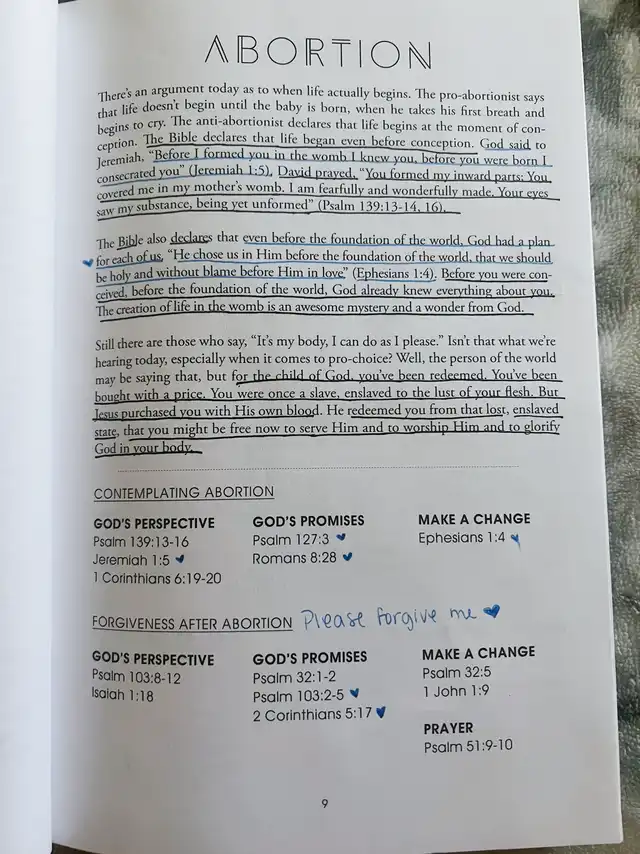 ABORTION
There's an argument today as to when life actually begins. The pro-abortionist says
that life doesn't begin until the baby is born, when he takes his first breath and
begins to cry. The anti-abortionist declares that life begins at the moment of con-
ception. The Bible declares that life began even before conception. God said to
Jeremiah, "Before I formed you in the womb I knew you, before you were born I
consecrated you" (Jeremiah 1:5). David prayed, "You formed my inward parts; You
covered me in my mother's womb. I am fearfully and wonderfully made. Your eyes
saw my substance, being yet unformed" (Psalm 139:13-14, 16).
The Bible also declares that even before the foundation of the world, God had a plan
for each of us, "He chose us in Him before the foundation of the world, that we should
be holy and without blame before Him in love" (Ephesians 1:4). Before you were con-
ceived, before the foundation of the world, God already knew everything about you.
The creation of life in the womb is an awesome mystery and a wonder from God.
Still there are those who say, "It's my body, I can do as I please." Isn't that what we're
hearing today, especially when it comes to pro-choice? Well, the person of the world
may be saying that, but for the child of God, you've been redeemed. You've been
bought with a price. You were once a slave, enslaved to the lust of your flesh. But
Jesus purchased you with His own blood. He redeemed you from that lost, enslaved
state, that you might be free now to serve Him and to worship Him and to glorify
God in your body.
CONTEMPLATING ABORTION
GOD'S PERSPECTIVE
Psalm 139:13-16
Jeremiah 1:5
1 Corinthians 6:19-20
GOD'S PROMISES
Psalm 127:3
Romans 8:28
MAKE A CHANGE
Ephesians 1:4
FORGIVENESS AFTER ABORTION Please forgive me
GOD'S PERSPECTIVE
Psalm 103:8-12
Isaiah 1:18
GOD'S PROMISES
Psalm 32:1-2
Psalm 103:2-5
2 Corinthians 5:17
MAKE A CHANGE
Psalm 32:5
1 John 1:9
PRAYER
Psalm 51:9-10
9